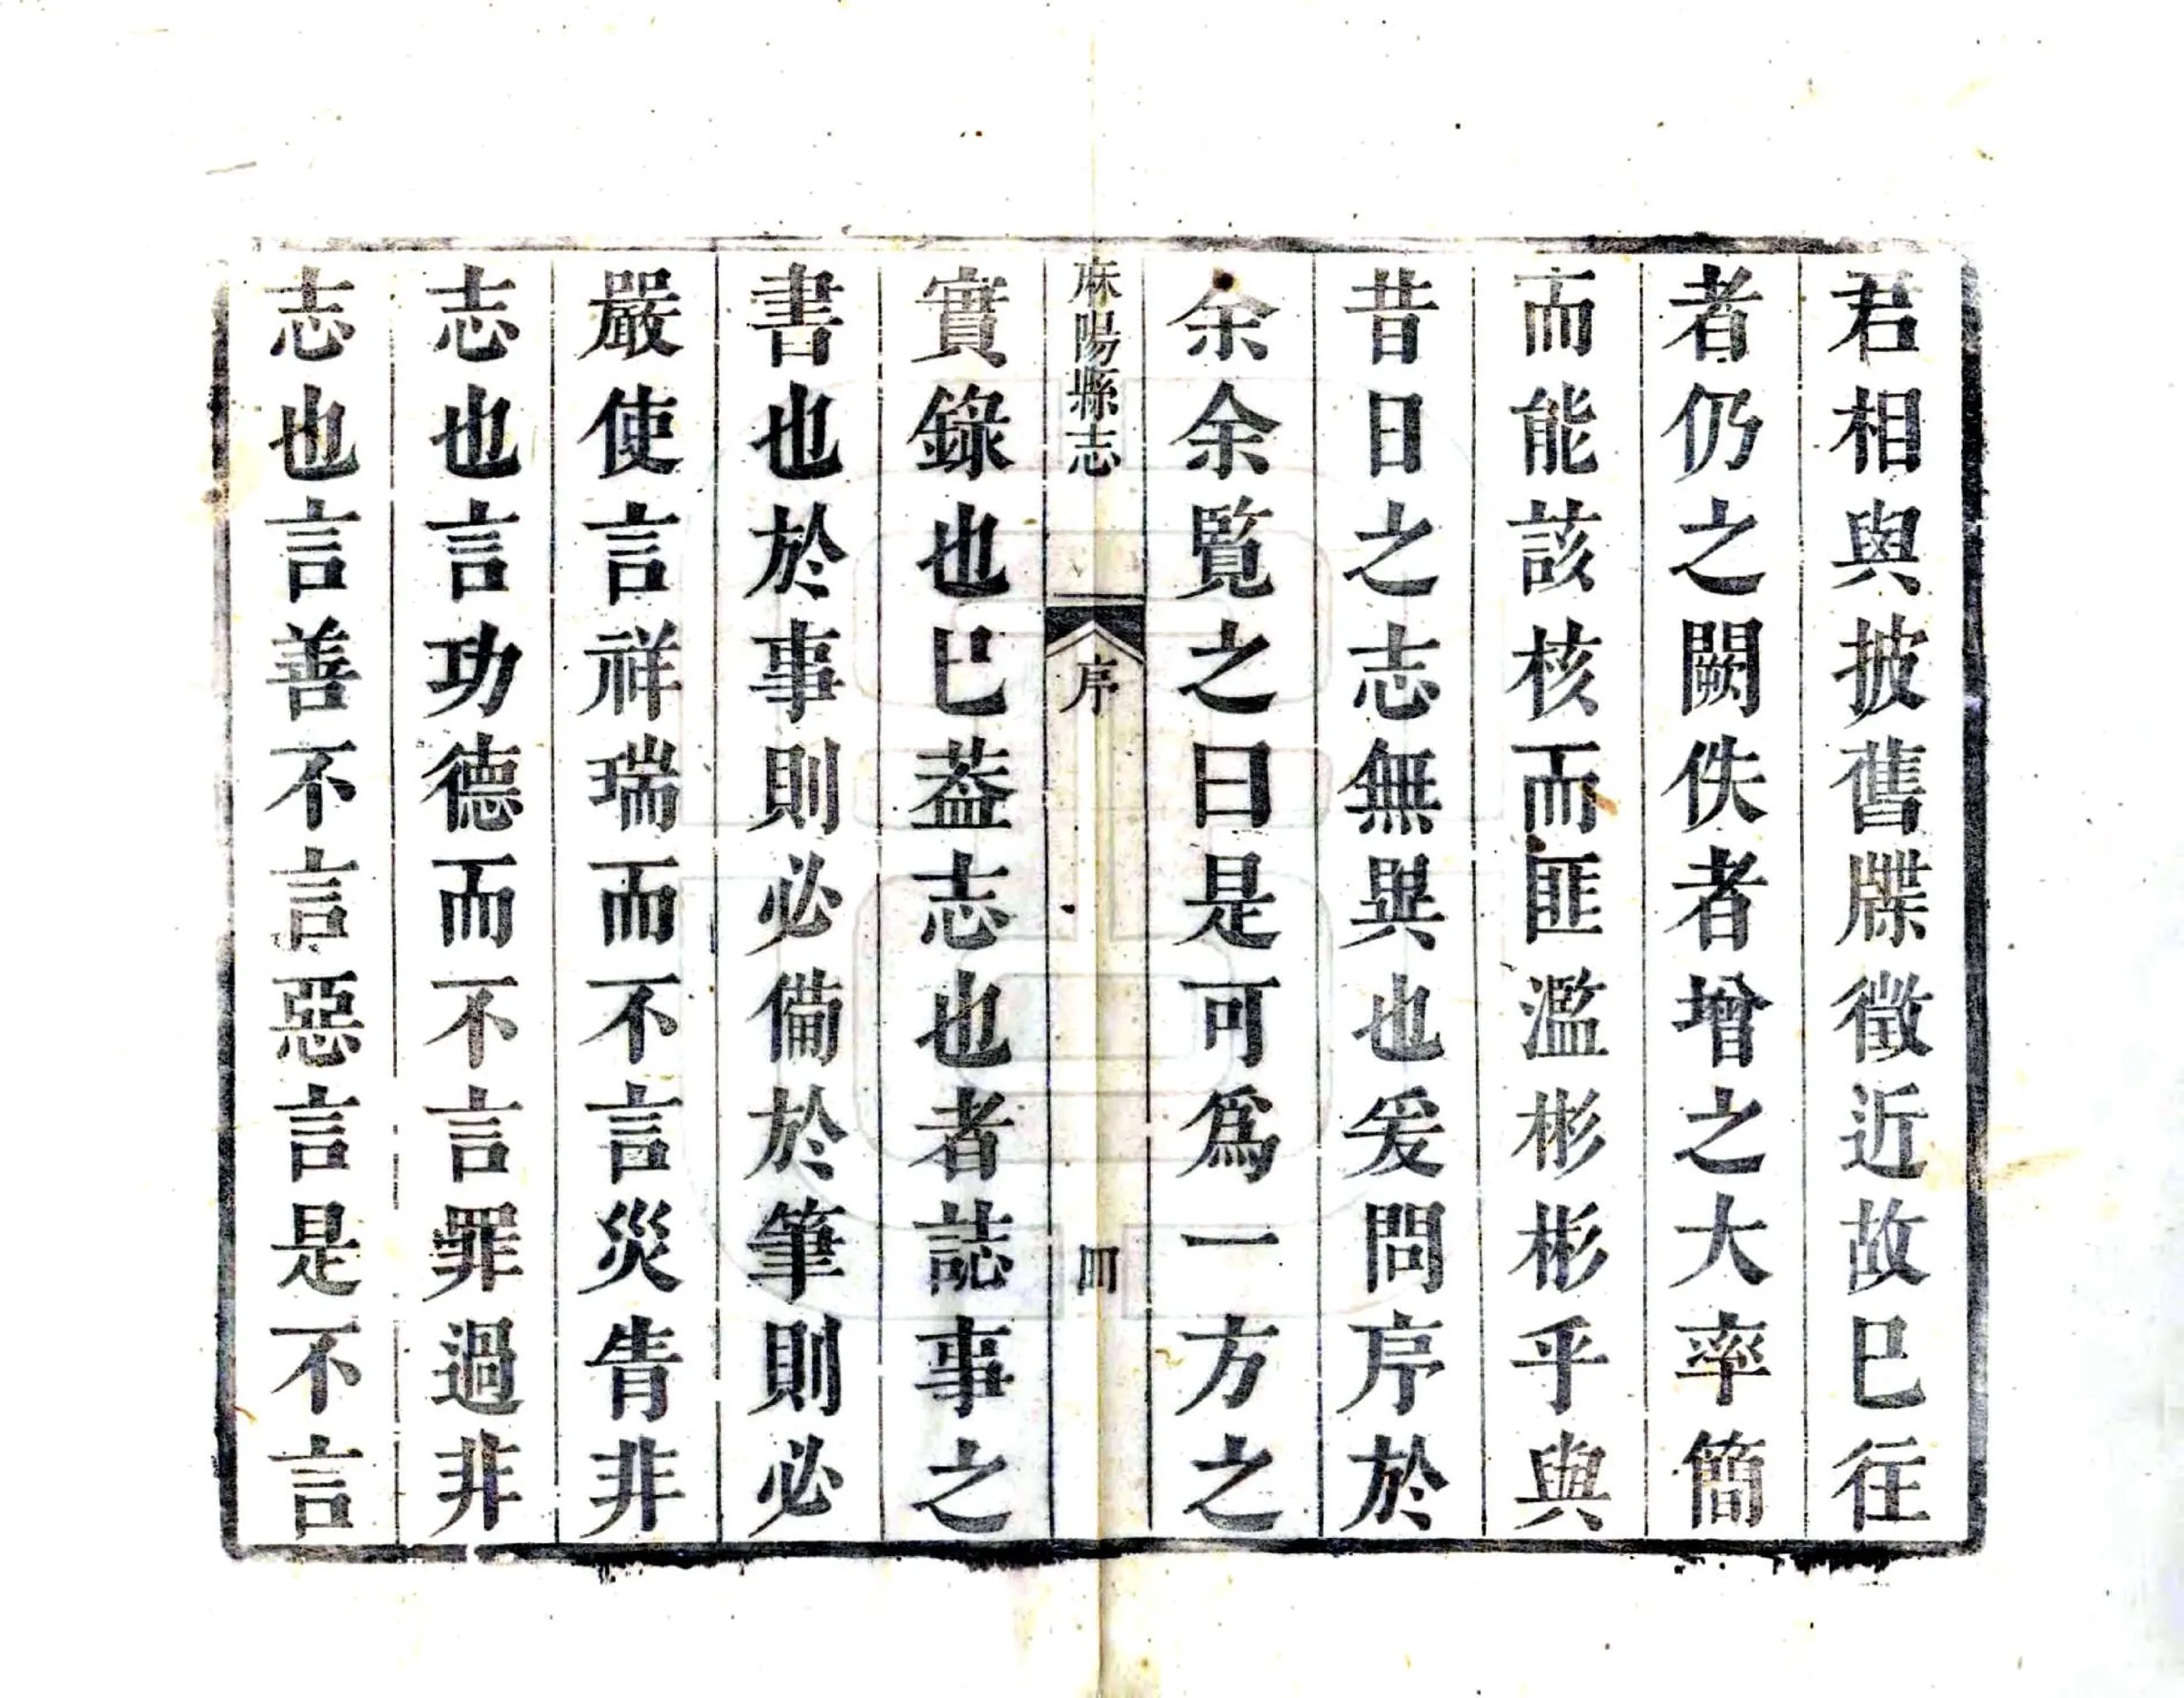 君相與披舊牒徵近故巳往
者仍之闕佚者增之大率簡
而能該核而匪濫彬彬乎與
昔日之志無異也爰問序於
余余覧之曰是可爲一方之
麻陽縣志
序
四
實錄也巳葢志也者誌事之
書也於事則必僃於筆則必
嚴使言祥瑞而不言災眚非
志也言功德而不言罪過非
志也言善不言惡言是不言